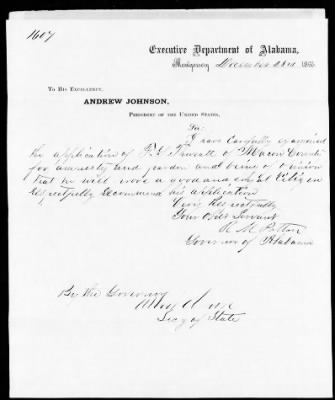 1607
Executive Department of Alabama,
Montgomery December 23rd 1865
To His Excellency,
ANDREW JOHNSON,
President of the United States,
Sir:
I have Carefully examined
the application of of Macon County
for amnesty and pardon and being of opinion
that he will a good and Citizen
Respectfully recommend his application
Very Respectfully
Your Obt Servant
R. M. Patton
Governor of Alabama
By the Governor
Secy of State